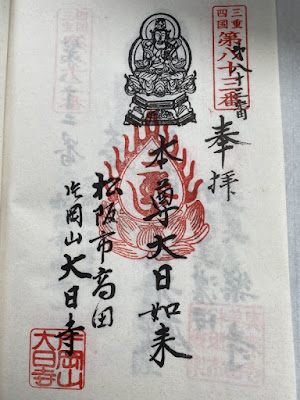 三重四國
第八十三番
奉拝
本尊大日如来
松阪市高田
片岡山大日寺
片岡山
大日寺